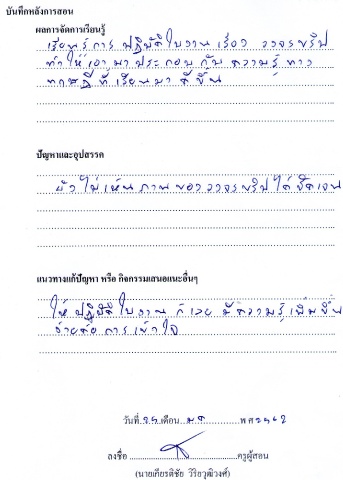 บันทึกหลังการสอน
ผลการจัดการเรียนรู้
เรียนรู้การปฏิบัติใบงานเรื่อง วงจรขริป
ทำให้เอามาประกอบกับความรู้ทาง
ทฤษฎีที่เรียนมาดีขึ้น
ปัญหาและอุปสรรค
ยังไม่เห็นภาพของวงจรขริปได้ชัดเจน
แนวทางแก้ปัญหา หรือ กิจกรรมเสนอแนะอื่นๆ
ให้ปฏิบัติใบงานก็เลยมีความรู้เพิ่มขึ้น
ง่ายต่อการเข้าใจ
วันที่ เดือน พ.ศ.2562
ลงชื่อ ครูผู้สอน
(นายเกียรติชัย วิริยวุฒิวงศ์)